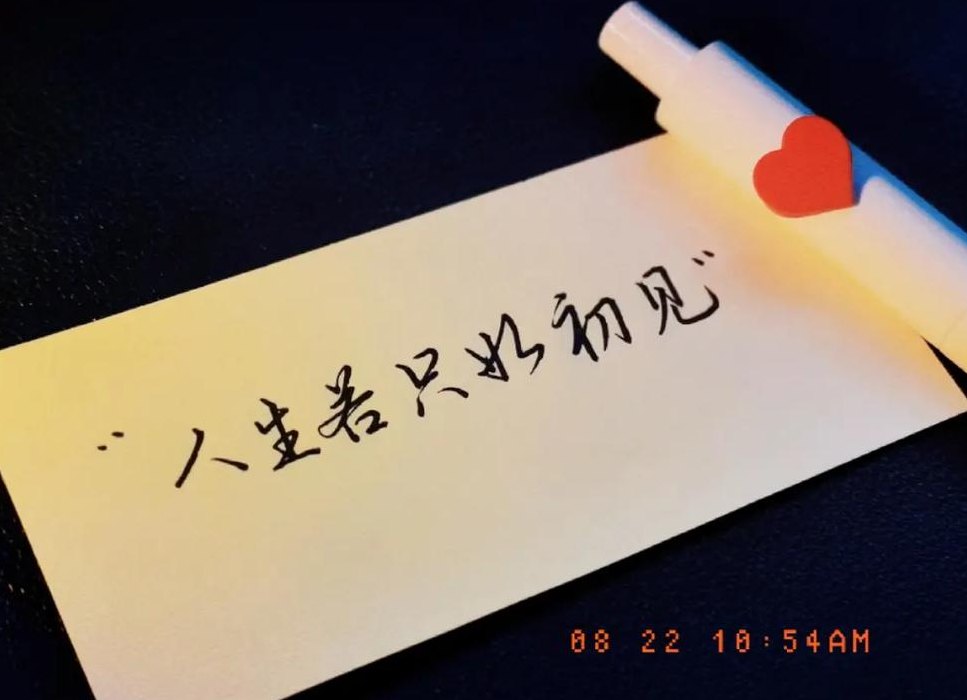 “人生若只如初见”
08 22 10:54AM